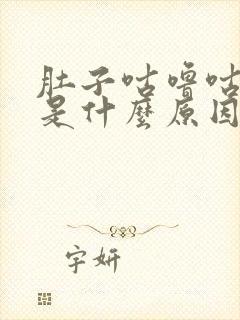 肚子咕噜咕
是什麼原因
宇妍